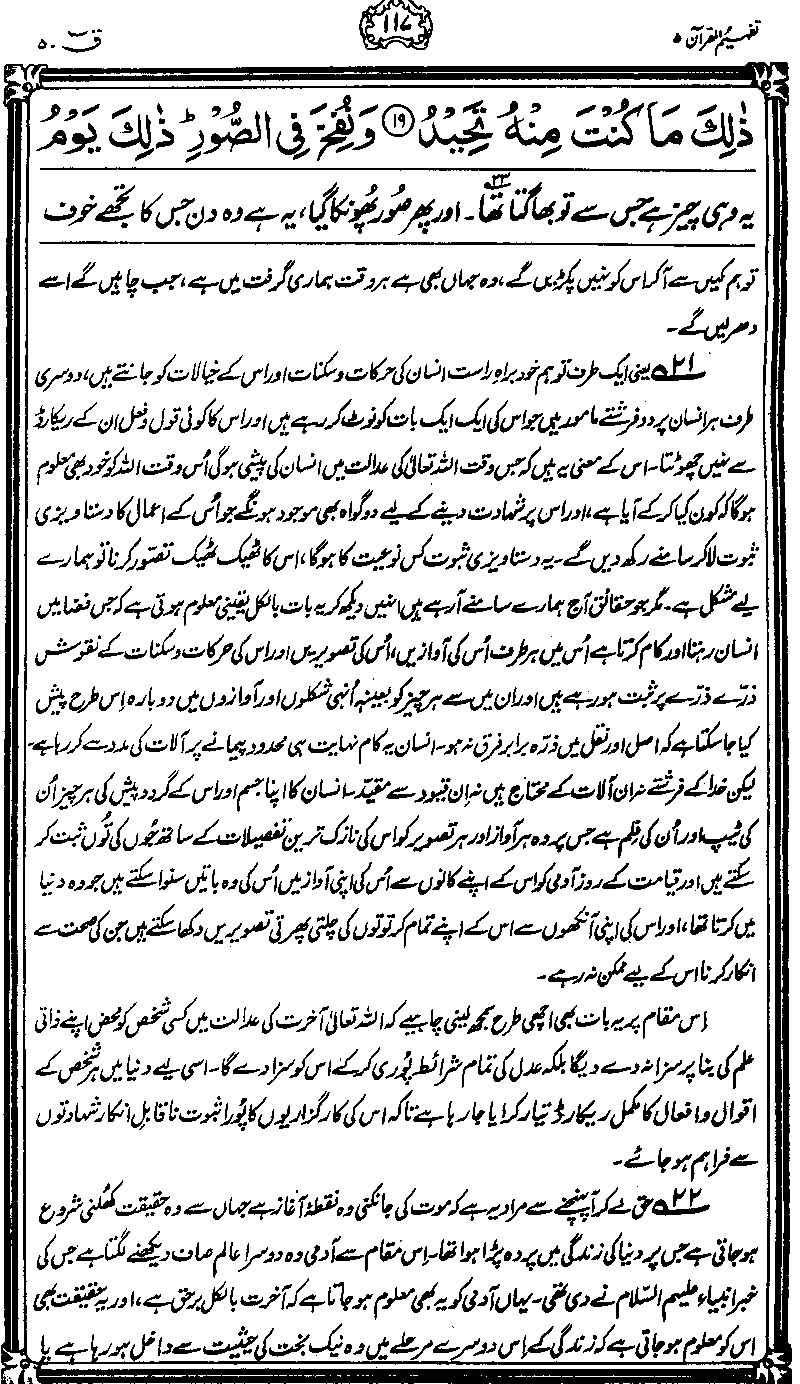 تفہیم القرآن ۵
۱۱۷
ق ۵۰
ذٰلِكَ مَا كُنْتَ مِنْهُ تَحِيْدُ ﴿۱۹﴾ وَنُفِخَ فِي الصُّوْرِ ؕ ذٰلِكَ يَوْمُ
یہ وہی چیز ہے جس سے تو بھاگتا تھا۲۳۔ اور پھر صُور پھونکا گیا، یہ ہے وہ دن جس کا تجھے خوف
تو ہم کہیں سے آکر اس کو نہیں پکڑیں گے، وہ جہاں بھی ہے ہر وقت ہماری گرفت میں ہے، جب چاہیں گے اسے
دھر لیں گے۔
۲۱ یعنی ایک طرف تو ہم خود براہِ راست انسان کی حرکات و سکنات اور اس کے خیالات کو جانتے ہیں، دوسری
طرف ہر انسان پر دو فرشتے مامور ہیں جو اس کی ایک ایک بات کو نوٹ کر رہے ہیں اور اس کا کوئی قول و فعل ان کے ریکارڈ
سے نہیں چھوٹتا۔ اس کے معنی یہ ہیں کہ جس وقت اللہ تعالیٰ کی عدالت میں انسان کی پیشی ہوگی اُس وقت اللہ کو خود بھی معلوم
ہوگا کہ کون کیا کر کے آیا ہے، اور اس پر شہادت دینے کے لیے دو گواہ بھی موجود ہونگے جو اُس کے اعمال کا دستاویزی
ثبوت لا کر سامنے رکھ دیں گے۔ یہ دستاویزی ثبوت کس نوعیت کا ہوگا، اس کا ٹھیک ٹھیک تصوّر کرنا تو ہمارے
لیے مشکل ہے۔ مگر جو حقائق آج ہمارے سامنے آ رہے ہیں انہیں دیکھ کر یہ بات بالکل یقینی معلوم ہوتی ہے کہ جس فضا میں
انسان رہتا اور کام کرتا ہے اُس میں ہر طرف اُس کی آوازیں، اُس کی تصویریں اور اس کی حرکات و سکنات کے نقوش
ذرّے ذرّے پر ثبت ہو رہے ہیں اور ان میں سے ہر چیز کو بعینہٖ اُنہی شکلوں اور آوازوں میں دوبارہ اِس طرح پیش
کیا جا سکتا ہے کہ اصل اور نقل میں ذرّہ برابر فرق نہ ہو۔ انسان یہ کام نہایت ہی محدود پیمانے پر آلات کی مدد سے کر رہا ہے۔
لیکن خدا کے فرشتے نہ ان آلات کے محتاج ہیں نہ اِن قیود سے مقیّد۔ انسان کا اپنا جسم اور اس کے گرد و پیش کی ہر چیز اُن
کی ٹیپ اور اُن کی فلم ہے جس پر وہ ہر آواز اور ہر تصویر کو اس کی نازک ترین تفصیلات کے ساتھ جُوں کی تُوں ثبت کر
سکتے ہیں اور قیامت کے روز آدمی کو اس کے اپنے کانوں سے اُس کی اپنی آواز میں اُس کی وہ باتیں سنوا سکتے ہیں جو وہ دنیا
میں کرتا تھا، اور اس کی اپنی آنکھوں سے اس کے اپنے تمام کرتوتوں کی چلتی پھرتی تصویریں دکھا سکتے ہیں جن کی صحت سے
انکار کرنا اس کے لیے ممکن نہ رہے۔
اِس مقام پر یہ بات بھی اچھی طرح سمجھ لینی چاہیے کہ اللہ تعالیٰ آخرت کی عدالت میں کسی شخص کو محض اپنے ذاتی
علم کی بنا پر سزا نہ دے دیگا بلکہ عدل کی تمام شرائط پُوری کر کے اس کو سزا دے گا۔ اسی لیے دنیا میں ہر شخص کے
اقوال و افعال کا مکمل ریکارڈ تیار کرایا جا رہا ہے تاکہ اس کی کارگزاریوں کا پُورا ثبوت ناقابلِ انکار شہادتوں
سے فراہم ہو جائے۔
۲۲ حق لے کر آ پہنچنے سے مراد یہ ہے کہ موت کی جانکنی وہ نقطۂ آغاز ہے جہاں سے وہ حقیقت کھلنی شروع
ہو جاتی ہے جس پر دنیا کی زندگی میں پردہ پڑا ہوا تھا۔ اِس مقام سے آدمی وہ دوسرا عالم صاف دیکھنے لگتا ہے جس کی
خبر انبیاء علیہم السّلام نے دی تھی۔ یہاں آدمی کو یہ بھی معلوم ہو جاتا ہے کہ آخرت بالکل برحق ہے، اور یہ حقیقت بھی
اس کو معلوم ہو جاتی ہے کہ زندگی کے اِس دوسرے مرحلے میں وہ نیک بخت کی حیثیت سے داخل ہو رہا ہے یا